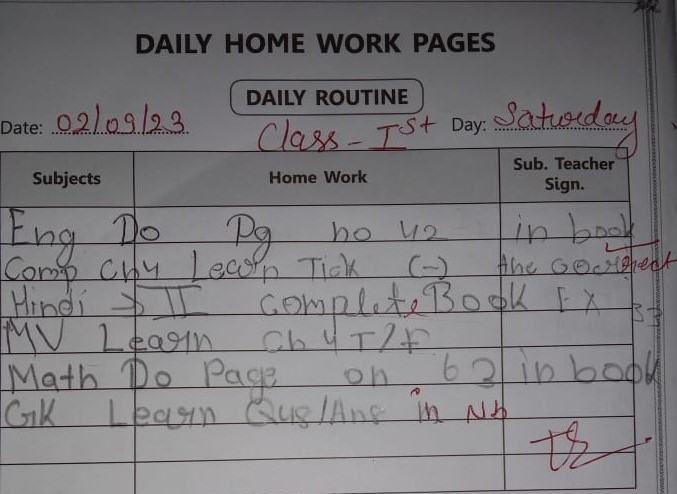 DAILY HOME WORK PAGES
DAILY ROUTINE
Date: 02/09/23 Class - Ist Day: Saturday
Subjects Home Work Sub. Teacher Sign.
Eng Do Pg no 42 in book
Comp Ch4 Learn Tick (-) the Correct
Hindi → II Complete Book Ex 33
MV Learn Ch 4 T/F
Math Do Page on 63 in book
GK Learn Qus/Ans in Nb